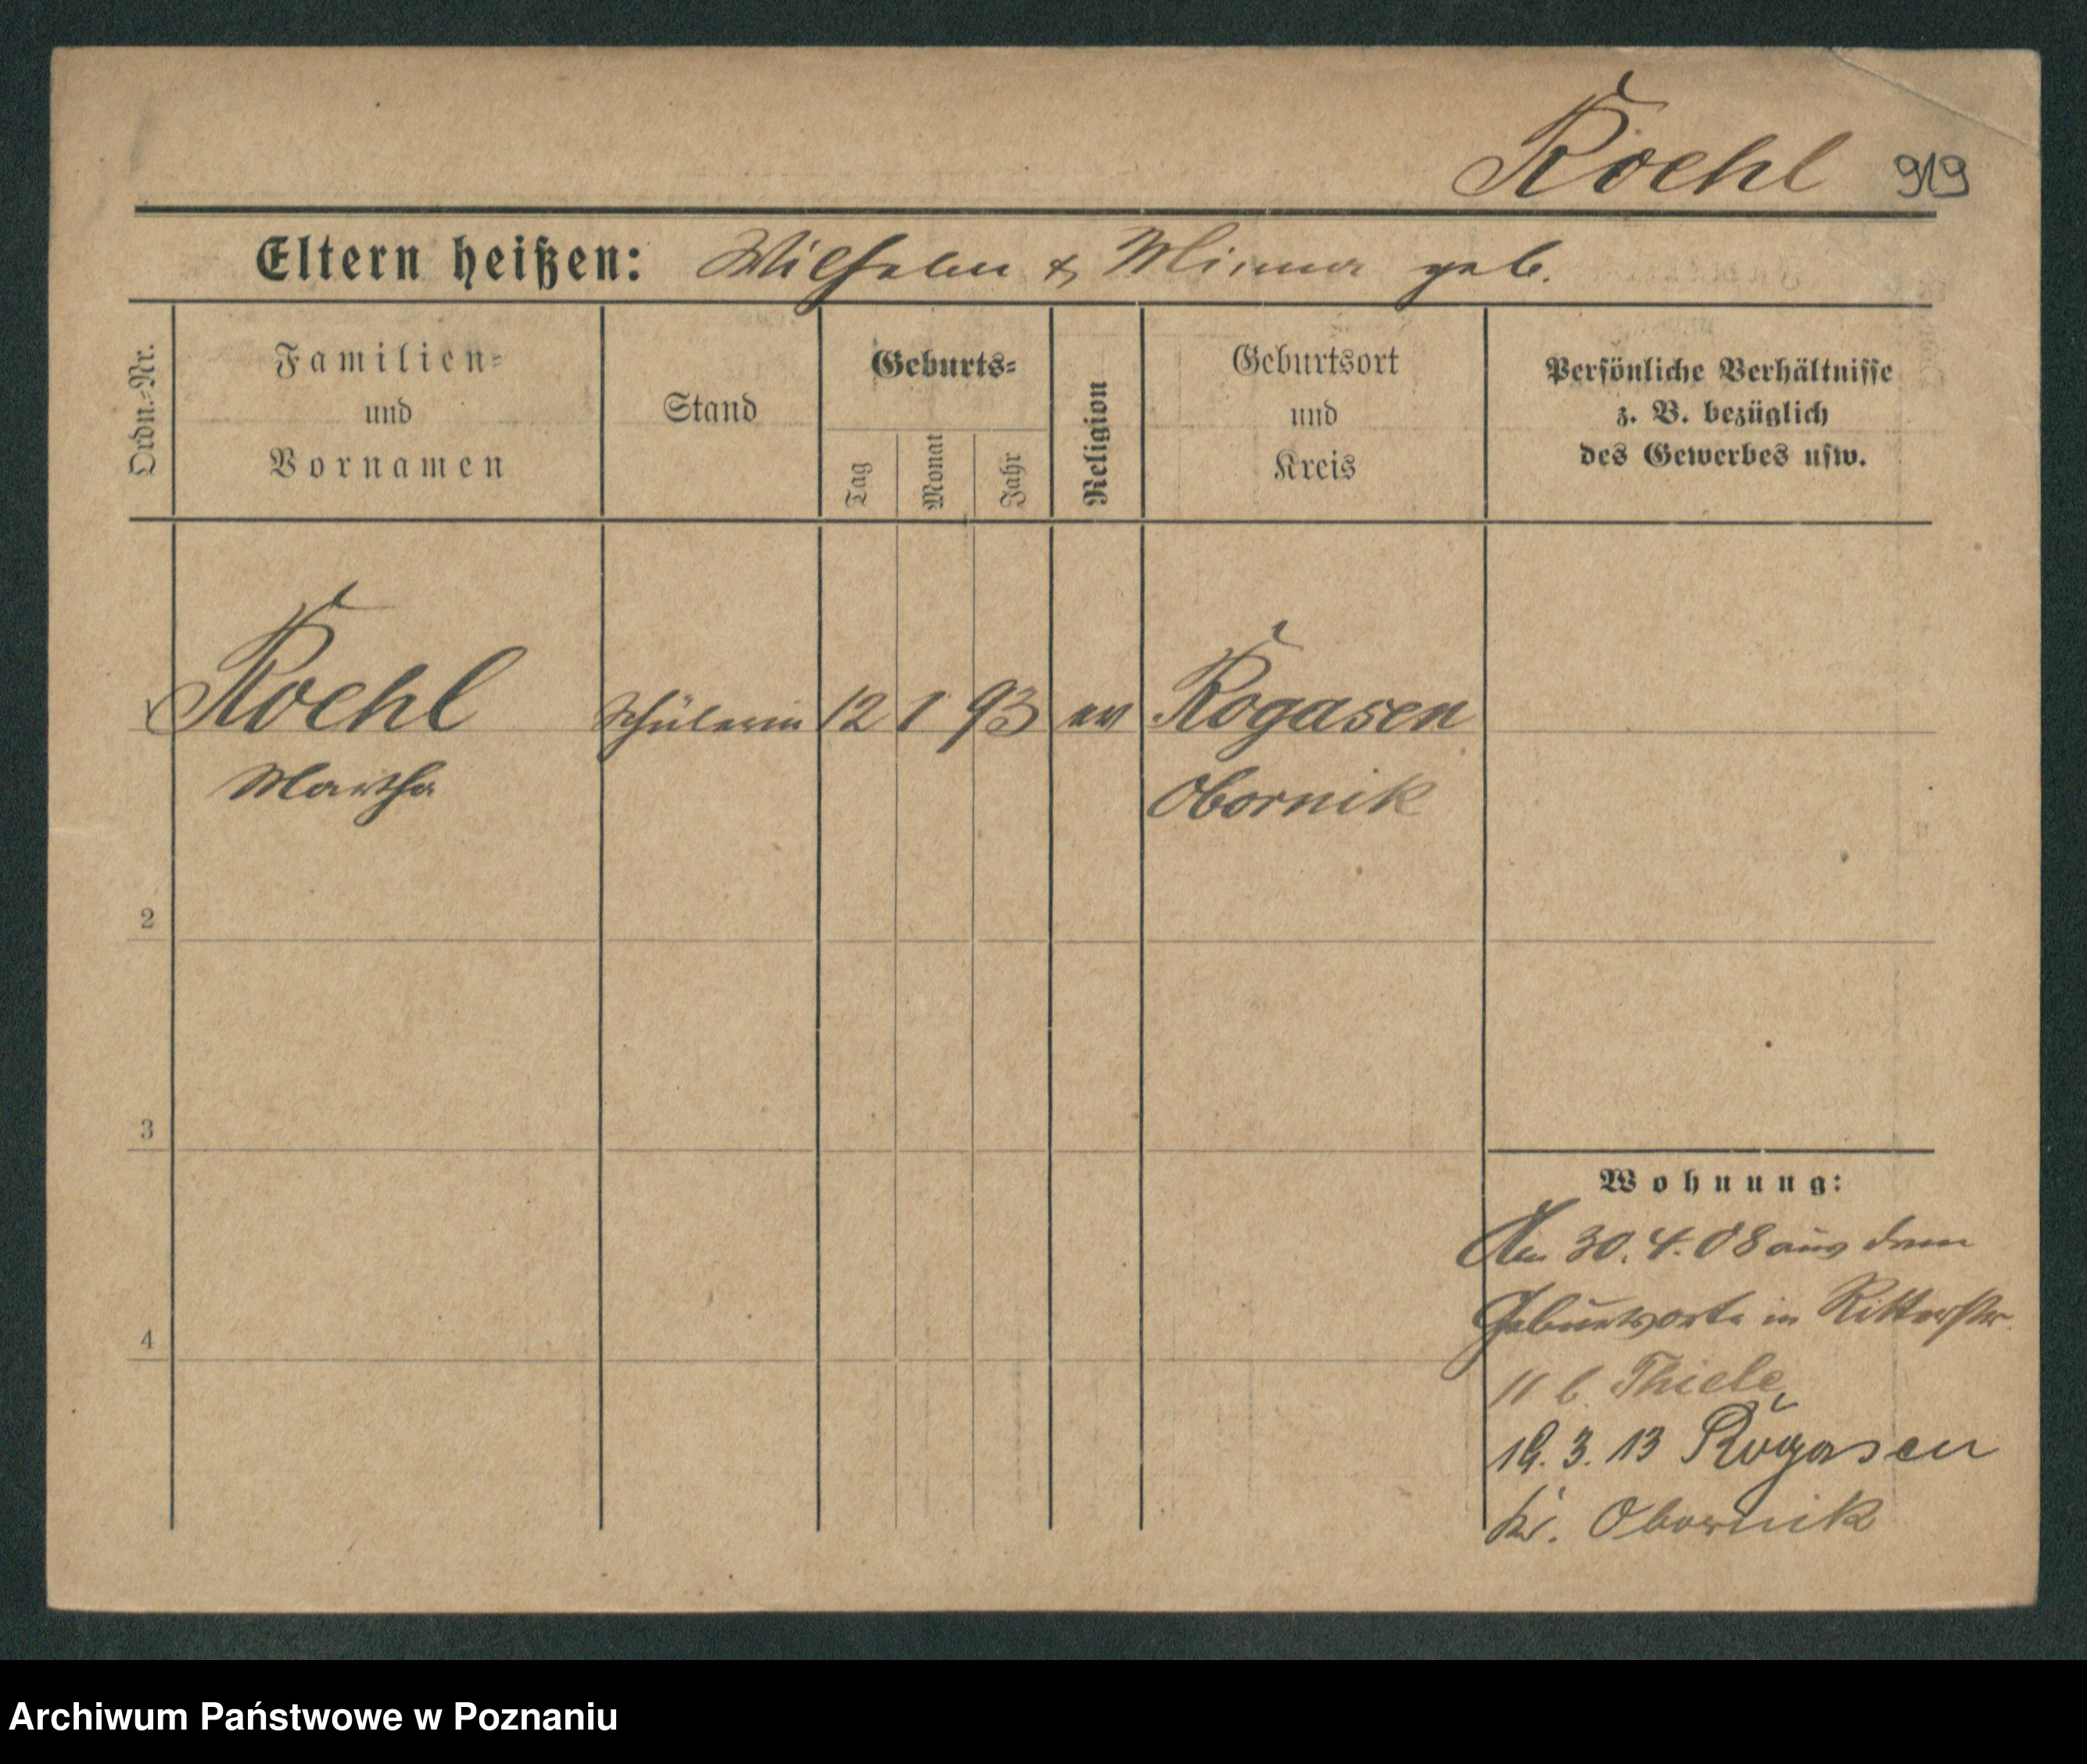 Roehl 919
Eltern heißen: Wilhelm & Minna geb.
Ordn.-Nr.
Familien-
und
Vornamen
Stand
Geburts-
Tag
Monat
Jahr
Religion
Geburtsort
und
Kreis
Persönliche Verhältnisse
z. B. bezüglich
des Gewerbes usw.
Roehl Schülerin 12 1 93 ev Rogasen
Martha Obornik
2
3
4
Wohnung:
Am 30.4.08 aus dem
Geburtsorte in Ritterstr.
11 b. Thiele
19.3.13 Rogasen
Kr. Obornik
Archiwum Państwowe w Poznaniu